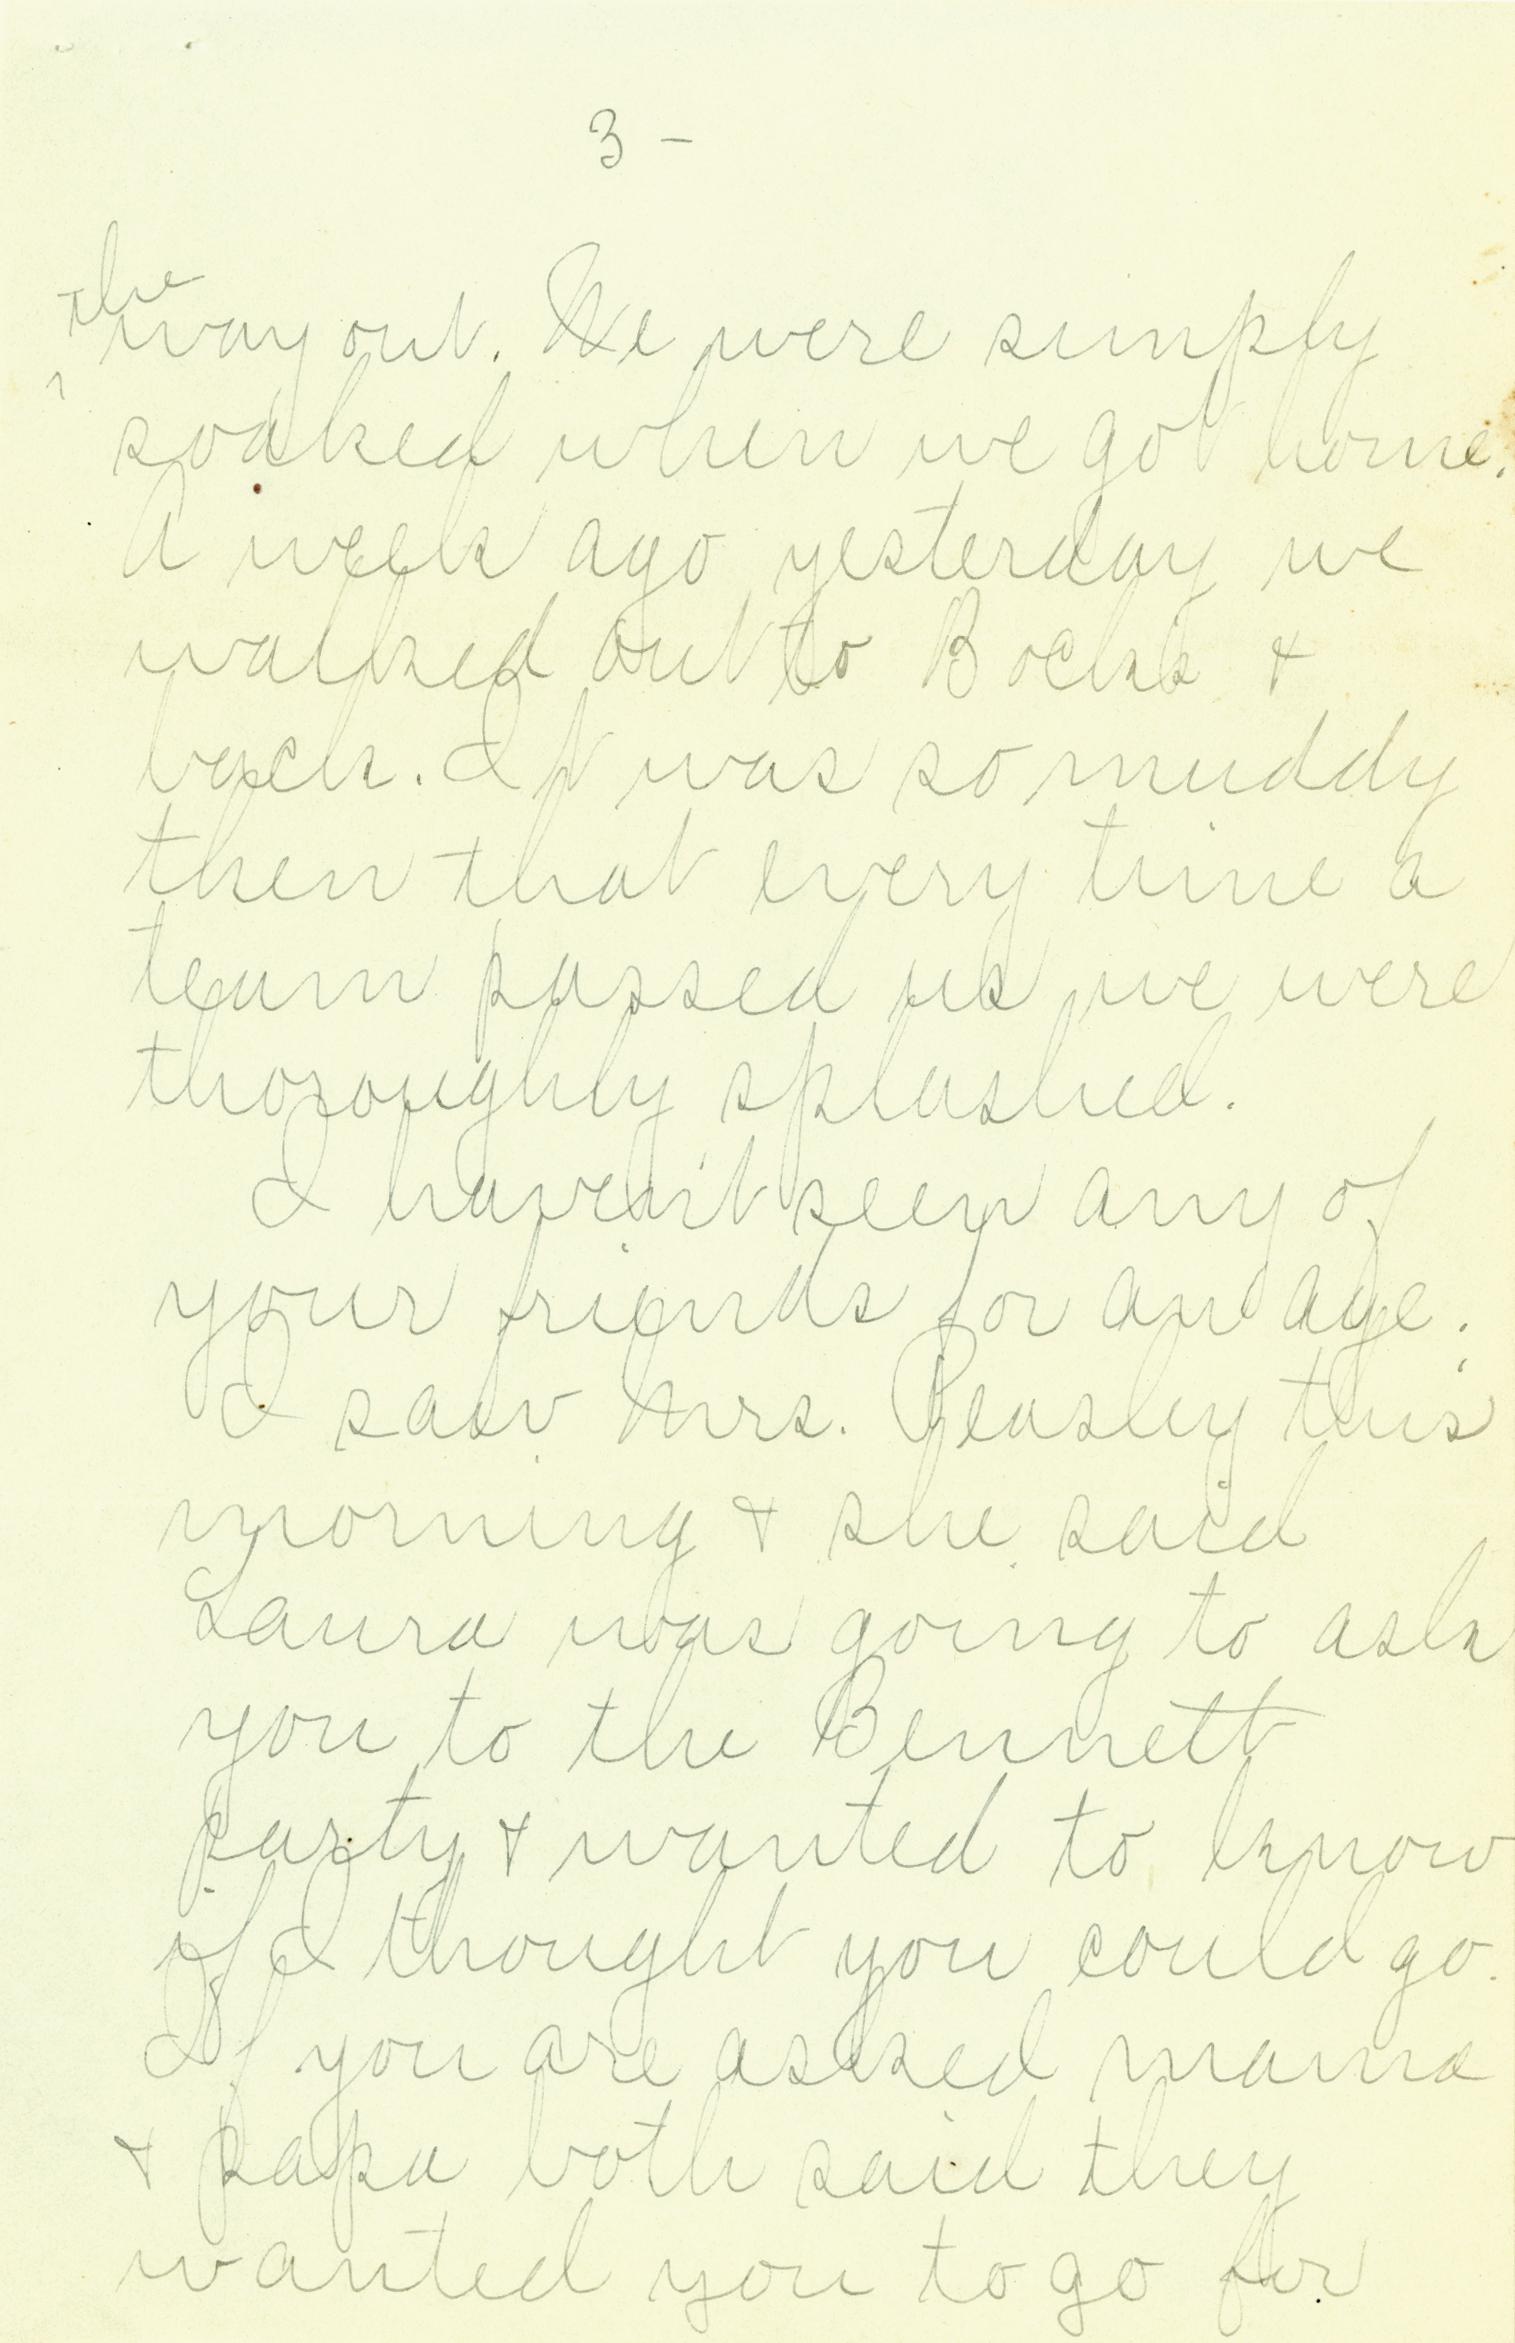 3 -
the
way out. We were simply
soaked when we got home.
A week ago yesterday we
walked out to Bocks &
back. It was so muddy
then that every time a
team passed us we were
thoroughly splashed.
I haven't seen any of
your friends for an age.
I saw Mrs. Beasley this
morning & she said
Laura was going to ask
you to the Bennett
party & wanted to know
if I thought you could go.
If you are asked mama
& papa both said they
wanted you to go for